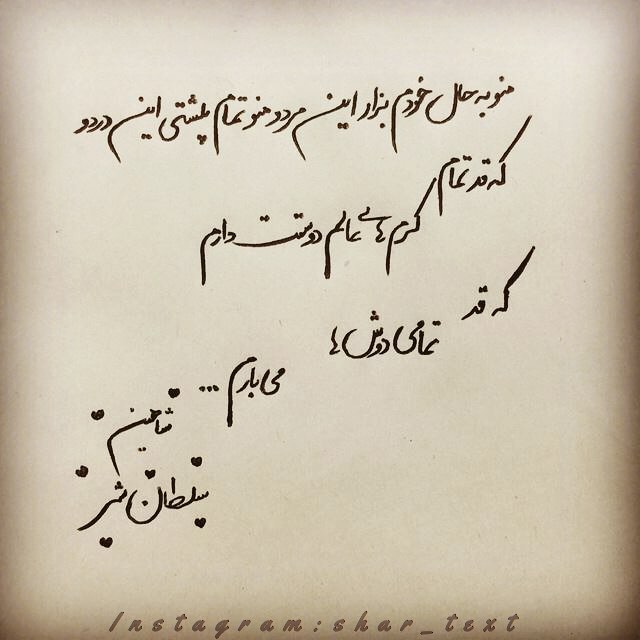 منو به حال خودم بزار این مرد و منو تمام پشتی این درد و
که قد تمام
کرم های عالم دوستت دارم
که قد
تمامی دوش ها
می بارم ...
شاهین
سلطان شهر
Instagram:shar_text